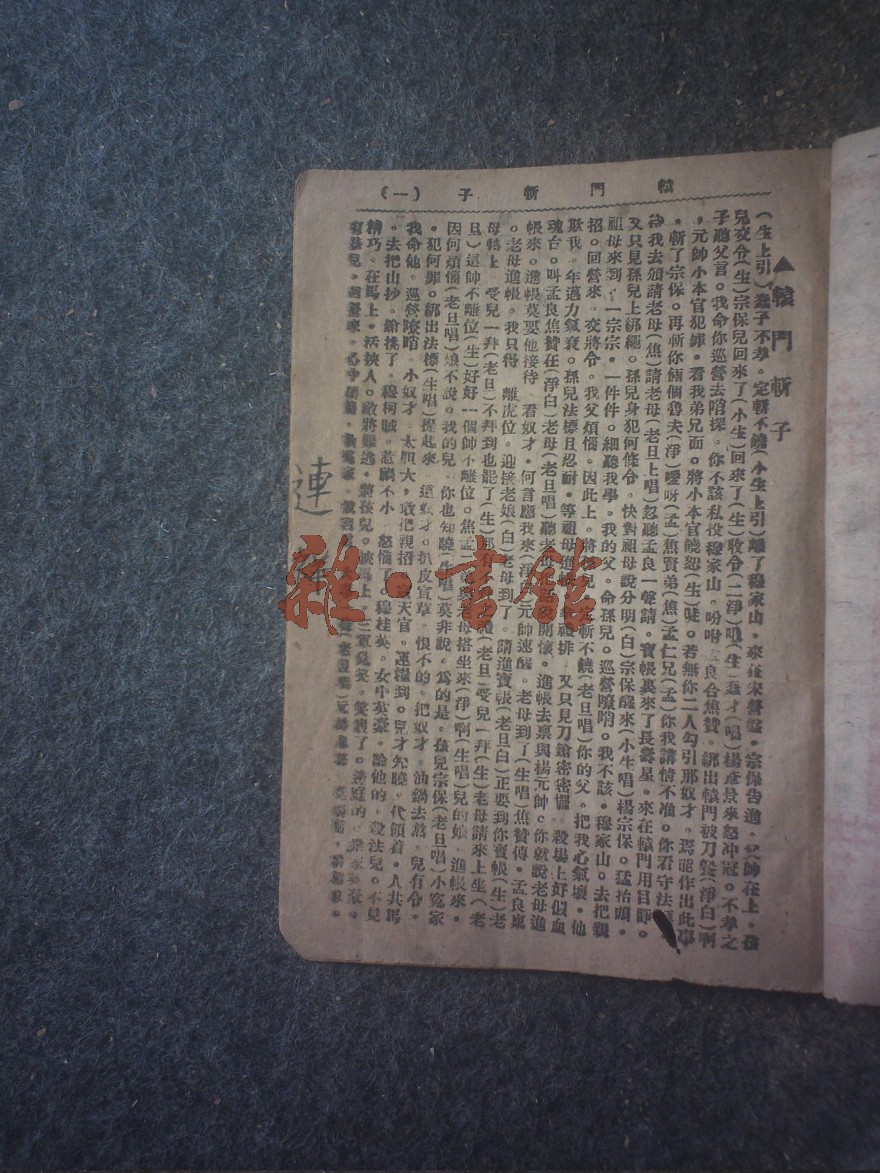 轅門斬子 (一)
▲轅門斬子
(生上引)蠢子不孝。定斬不饒(小生上引)離了穆家山。來在宋營盤。宗保告進。父帥在上。孩
兒交令(生)宗保兒回來了(小生)回來了(生)收令(二淨)哦(生)蠢才(唱)楊彥景來怒冲冠。不孝之
子聽父言。我命你巡營去哨探。你不該私投穆家山。吩咐孟良合焦贊。綁出轅門被刀餐(淨白)啊
。元帥小本官犯罪。看我弟兄面。將小本官饒恕(生)唗。若無你二人勾引那奴才。焉能作出此事
。斬了宗保。再斬你倆個魯夫(淨)噯呀(孟)焦賢弟(焦)孟仁兄(孟)你我講情不准。你看守法
待我去頒請老母(焦)請老母(老旦上唱)忽聽孟良一聲請。寶帳裏來了長壽星。來在轅門用目睜。
又只見孫兒上綁繩。孫兒身犯何條令。快對祖母說分明(白)宗保醒來(小生唱)楊宗保。猛抬頭。
祖母來到。一宗宗。一件件。細聽我學。我的父。命孫兒。巡營廢哨。我不該。穆家山。去把親
招。回營來。交將令。我父煩惱。因此上。將孫兒。定斬不饒(老旦唱)你的父。把我心氣壞。他
欺我。年邁力氣衰。孫兒法標且忍耐。等祖母進帳排。又只見刀鎗密密擺。殺場上好似血
魂台。叫孟良焦贊在(淨白)老母(老旦唱)聽老母開懷。進帳去禀與楊元帥。你就說老母進
帳來。進帳莫要他接待。看奴才。何言應我來(淨白)元帥速醒。老母到了(生唱)焦贊傳。孟良禀
。老母進帳。我只得。離虎位。迎接老娘(白)老母到了。請進寶帳(老旦白)正要到你寶帳(生)老
母轉上。受兒一拜(老旦)不拜到也罷了(生)那有(老旦)受兒一拜(生)老母請來上坐(老
旦)這帥不離位(生)好好一個帥不離位。焦孟二卿與老母搭坐來(淨)啊(生唱)兒的娘。進帳來。
因何煩惱(老旦唱)娘不說。我的兒。你也知曉(生唱)莫非說。爲的是。孩兒宗保(老旦唱)小寃家
。犯何罪。綁出法標(生唱)提起來。這奴才。扒皮宣草。恨不的。把奴才。油鍋去熬。兒有令。
我命他。巡營廢哨。小奴才。太胆大。敢把親招。天官。運糧到。兒才知曉。代領着。人共馬
。去把山抄。鎗挑了。穆柯賊。惹禍不小。怒惱了。穆桂英。女中英豪。論他的。殺法兒。不見
精巧。在馬上。活挾人。
連
雜·書館